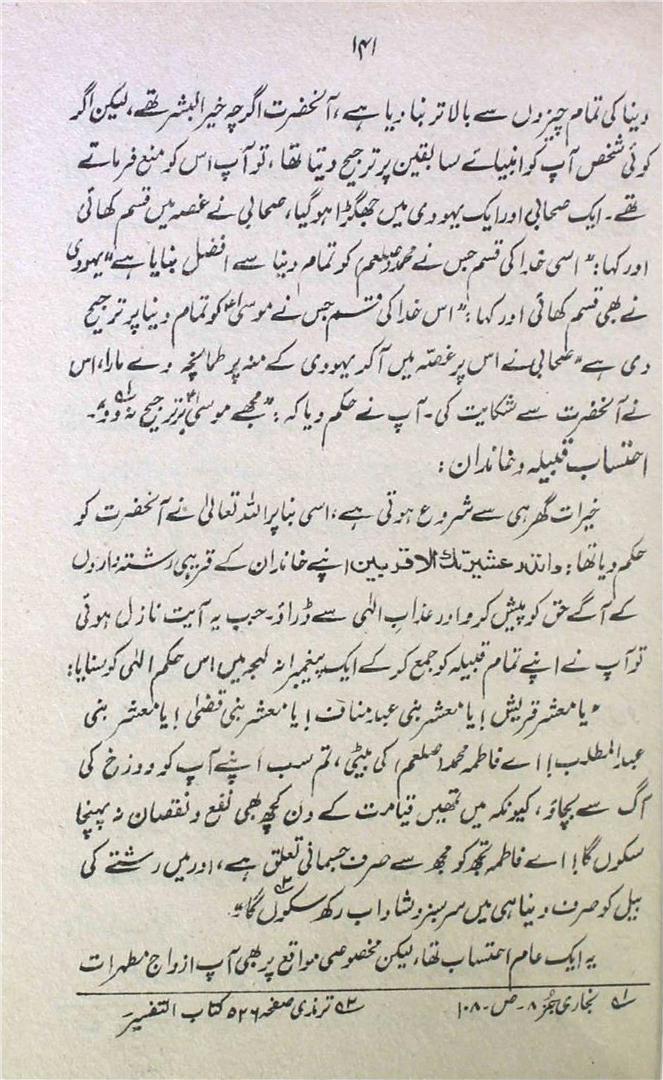 ۱۴۱
دینا کی تمام چیزوں سے بالاتر بنا دیا ہے، آنحضرت اگرچہ خیر البشر تھے، لیکن اگر
کوئی شخص آپ کو انبیائے سابقین پر ترجیح دیتا تھا، تو آپ اس کو منع فرماتے
تھے۔ ایک صحابی اور ایک یہودی میں جھگڑا ہوگیا، صحابی نے غصہ میں قسم کھائی
اور کہا: "اسی خدا کی قسم جس نے محمد (صلعم) کو تمام دینا سے افضل بنایا ہے" یہودی
نے بھی قسم کھائی اور کہا: "اس خدا کی قسم جس نے موسیٰؑ کو تمام دینا پر ترجیح
دی ہے" صحابی نے اس پر غصّہ میں آکر یہودی کے منہ پر طمانچہ دے مارا، اس
نے آنحضرت سے شکایت کی۔ آپ نے حکم دیا کہ: "مجھے موسیٰؑ پر ترجیح نہ دو"۔ ۵۱
احتساب قبیلہ و خاندان:
خیرات گھر ہی سے شروع ہوتی ہے، اسی بنا پر اللہ تعالیٰ نے آنحضرت کو
حکم دیا تھا: وانذر عشیرتك الاقربین اپنے خاندان کے قریبی رشتہ داروں
کے آگے حق کو پیش کرو اور عذاب الہٰی سے ڈراؤ۔ جب یہ آیت نازل ہوئی
تو آپ نے اپنے تمام قبیلہ کو جمع کر کے ایک پیغمبرانہ لہجہ میں اس حکم الہٰی کو سنایا:
"یا معشر قریش! یا معشر بنی عبد مناف! یا معشر بنی قضیٰ! یا معشر بنی
عبد المطلب! اے فاطمہ محمد (صلعم) کی بیٹی، تم سب اپنے آپ کو دوزخ کی
آگ سے بچاؤ، کیونکہ میں تمھیں قیامت کے دن کچھ بھی نفع و نقصان نہ پہنچا
سکوں گا! اے فاطمہ تجھ کو مجھ سے صرف جسمانی تعلق ہے، اور میں رشتے کی
بیل کو صرف دینا ہی میں سرسبز و شاداب رکھ سکوں گا"۔ ۵۲
یہ ایک عام احتساب تھا، لیکن مخصوص مواقع پر بھی آپ ازواج مطہرات
۵۱ بخاری جزء ۸۔ ص۔ ۱۰۸ ۵۲ ترمذی صفحہ ۵۲۶ کتاب التفسیر